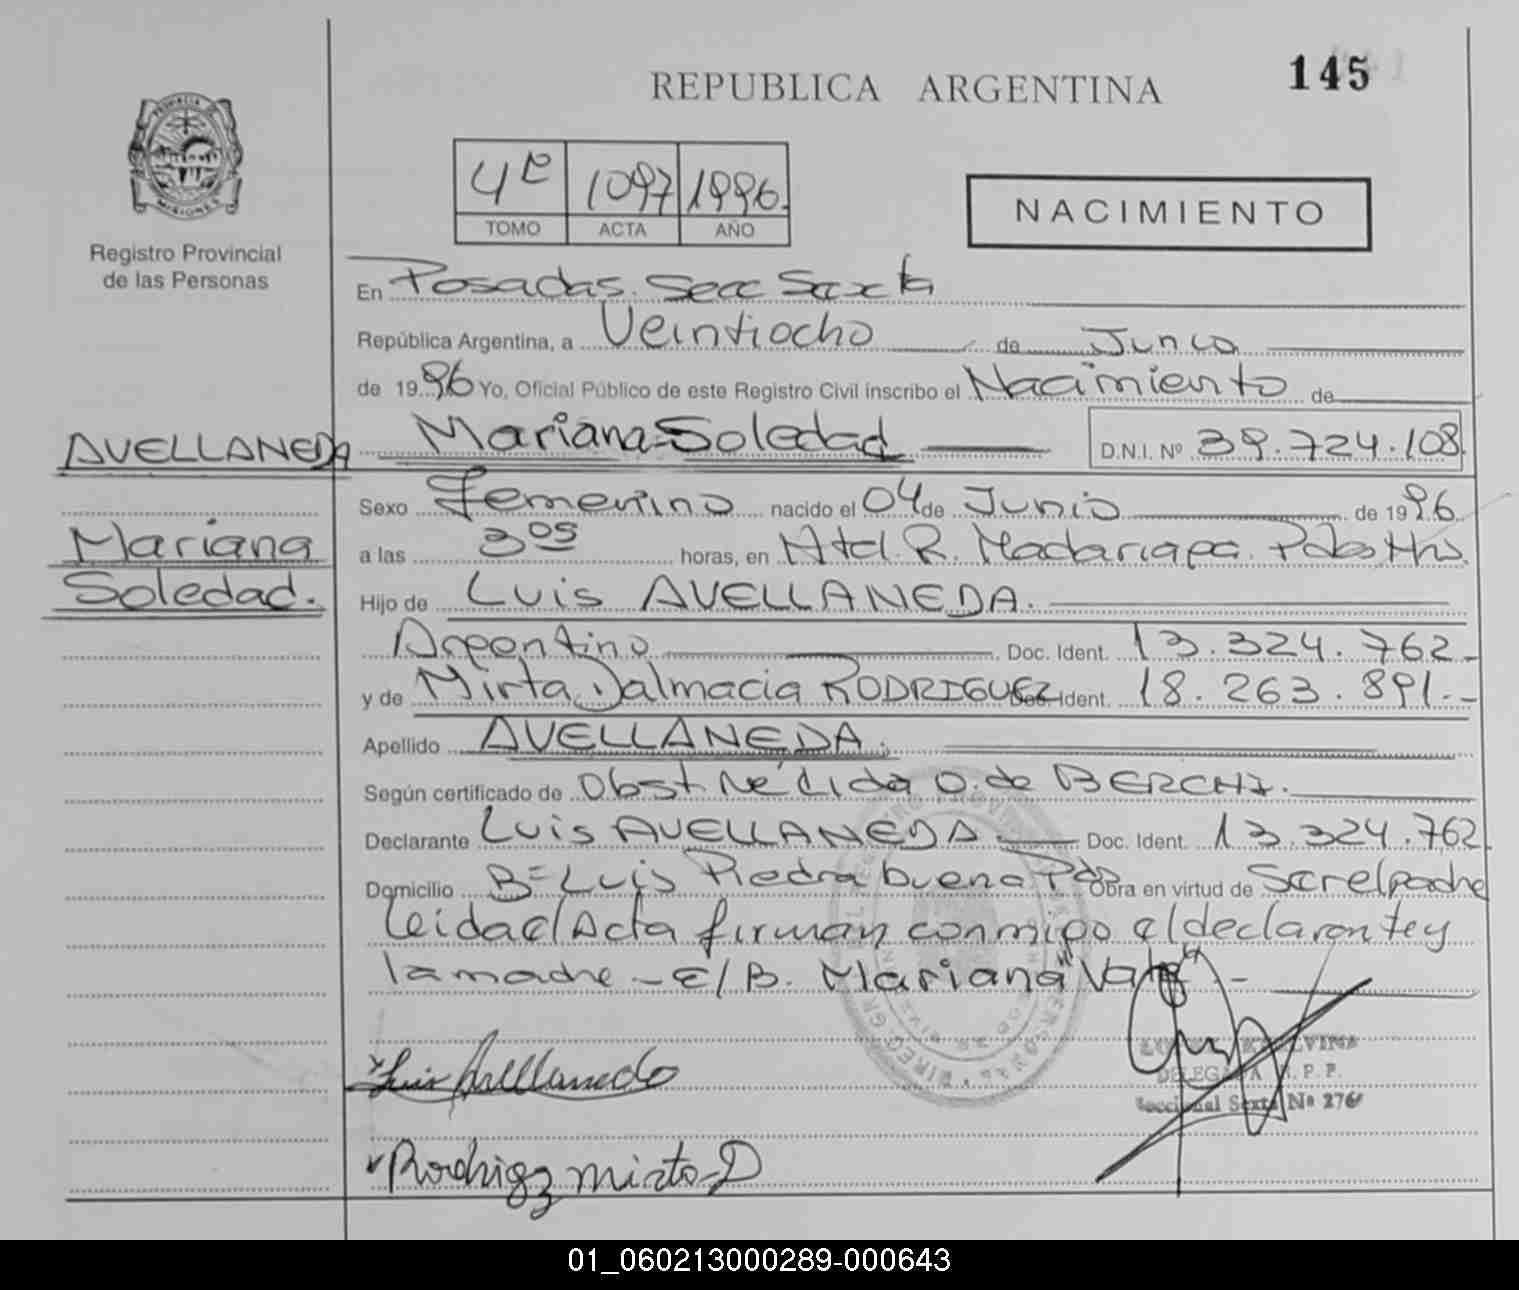 145
REPUBLICA ARGENTINA
PROVINCIA DE
MISIONES
Registro Provincial
de las Personas
4E 1097 1996.
TOMO ACTA AÑO
NACIMIENTO
En Posadas. Secc Sexta
República Argentina, a Veintiocho de Junio
de 1996 Yo, Oficial Público de este Registro Civil inscribo el Nacimiento de
AVELLANEDA Mariana Soledad D.N.I. Nº 39.724.108
Sexo Femenino nacido el 04 de Junio de 1996.
Mariana
a las 3 05 horas, en Htal. R. Madariaga. Pdas Mns.
Soledad.
Hijo de Luis AVELLANEDA.
Argentino Doc. Ident. 13.324.762-
y de Mirta Dalmacia RODRIGUEZ Doc. Ident. 18.263.891.-
Apellido AVELLANEDA.
Según certificado de Obst Nélida O. de BERCHI.
Declarante Luis AVELLANEDA Doc. Ident. 13.324.762
Domicilio Bº Luis Piedra buena Pdas Obra en virtud de Ser el padre
Leida el Acta firman conmigo el declarante y
la madre - E/B. Mariana "Vale" -
Luis Avellaneda
DELEGADA R. P. P.
Seccional Sexta Nº 276
Rodrigz mirta D
01_060213000289-000643